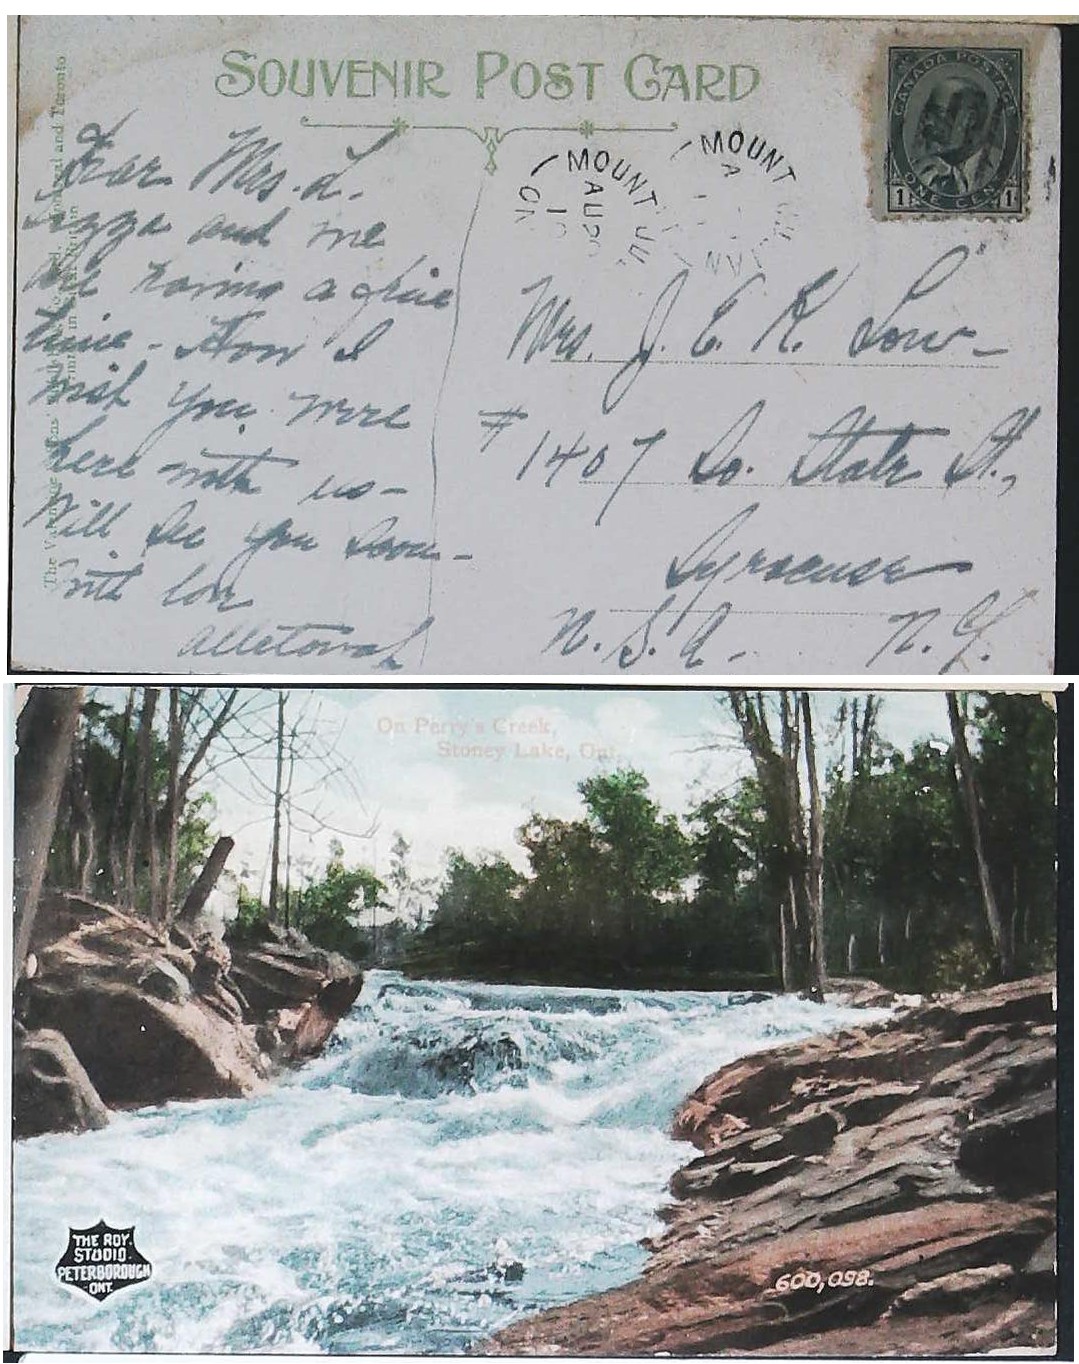 SOUVENIR POST CARD
CANADA POSTAGE
1 ONE CENT 1
MOUNT
AU
ON
MOUNT
A
Dear Mrs. L.
and me
are having a fine
time - How I
wish you were
here with us -
Will see you soon -
with love
Mrs. J. E. K. Low -
# 1407 So. State St.,
Syracuse
U.S.A. N.Y.
The Valentine & Sons' Publishing Co. Ltd. Montreal and Toronto
Printed in Great Britain
On Perry's Creek,
Stoney Lake, Ont.
THE ROY
STUDIO
PETERBOROUGH
ONT.
600,098.